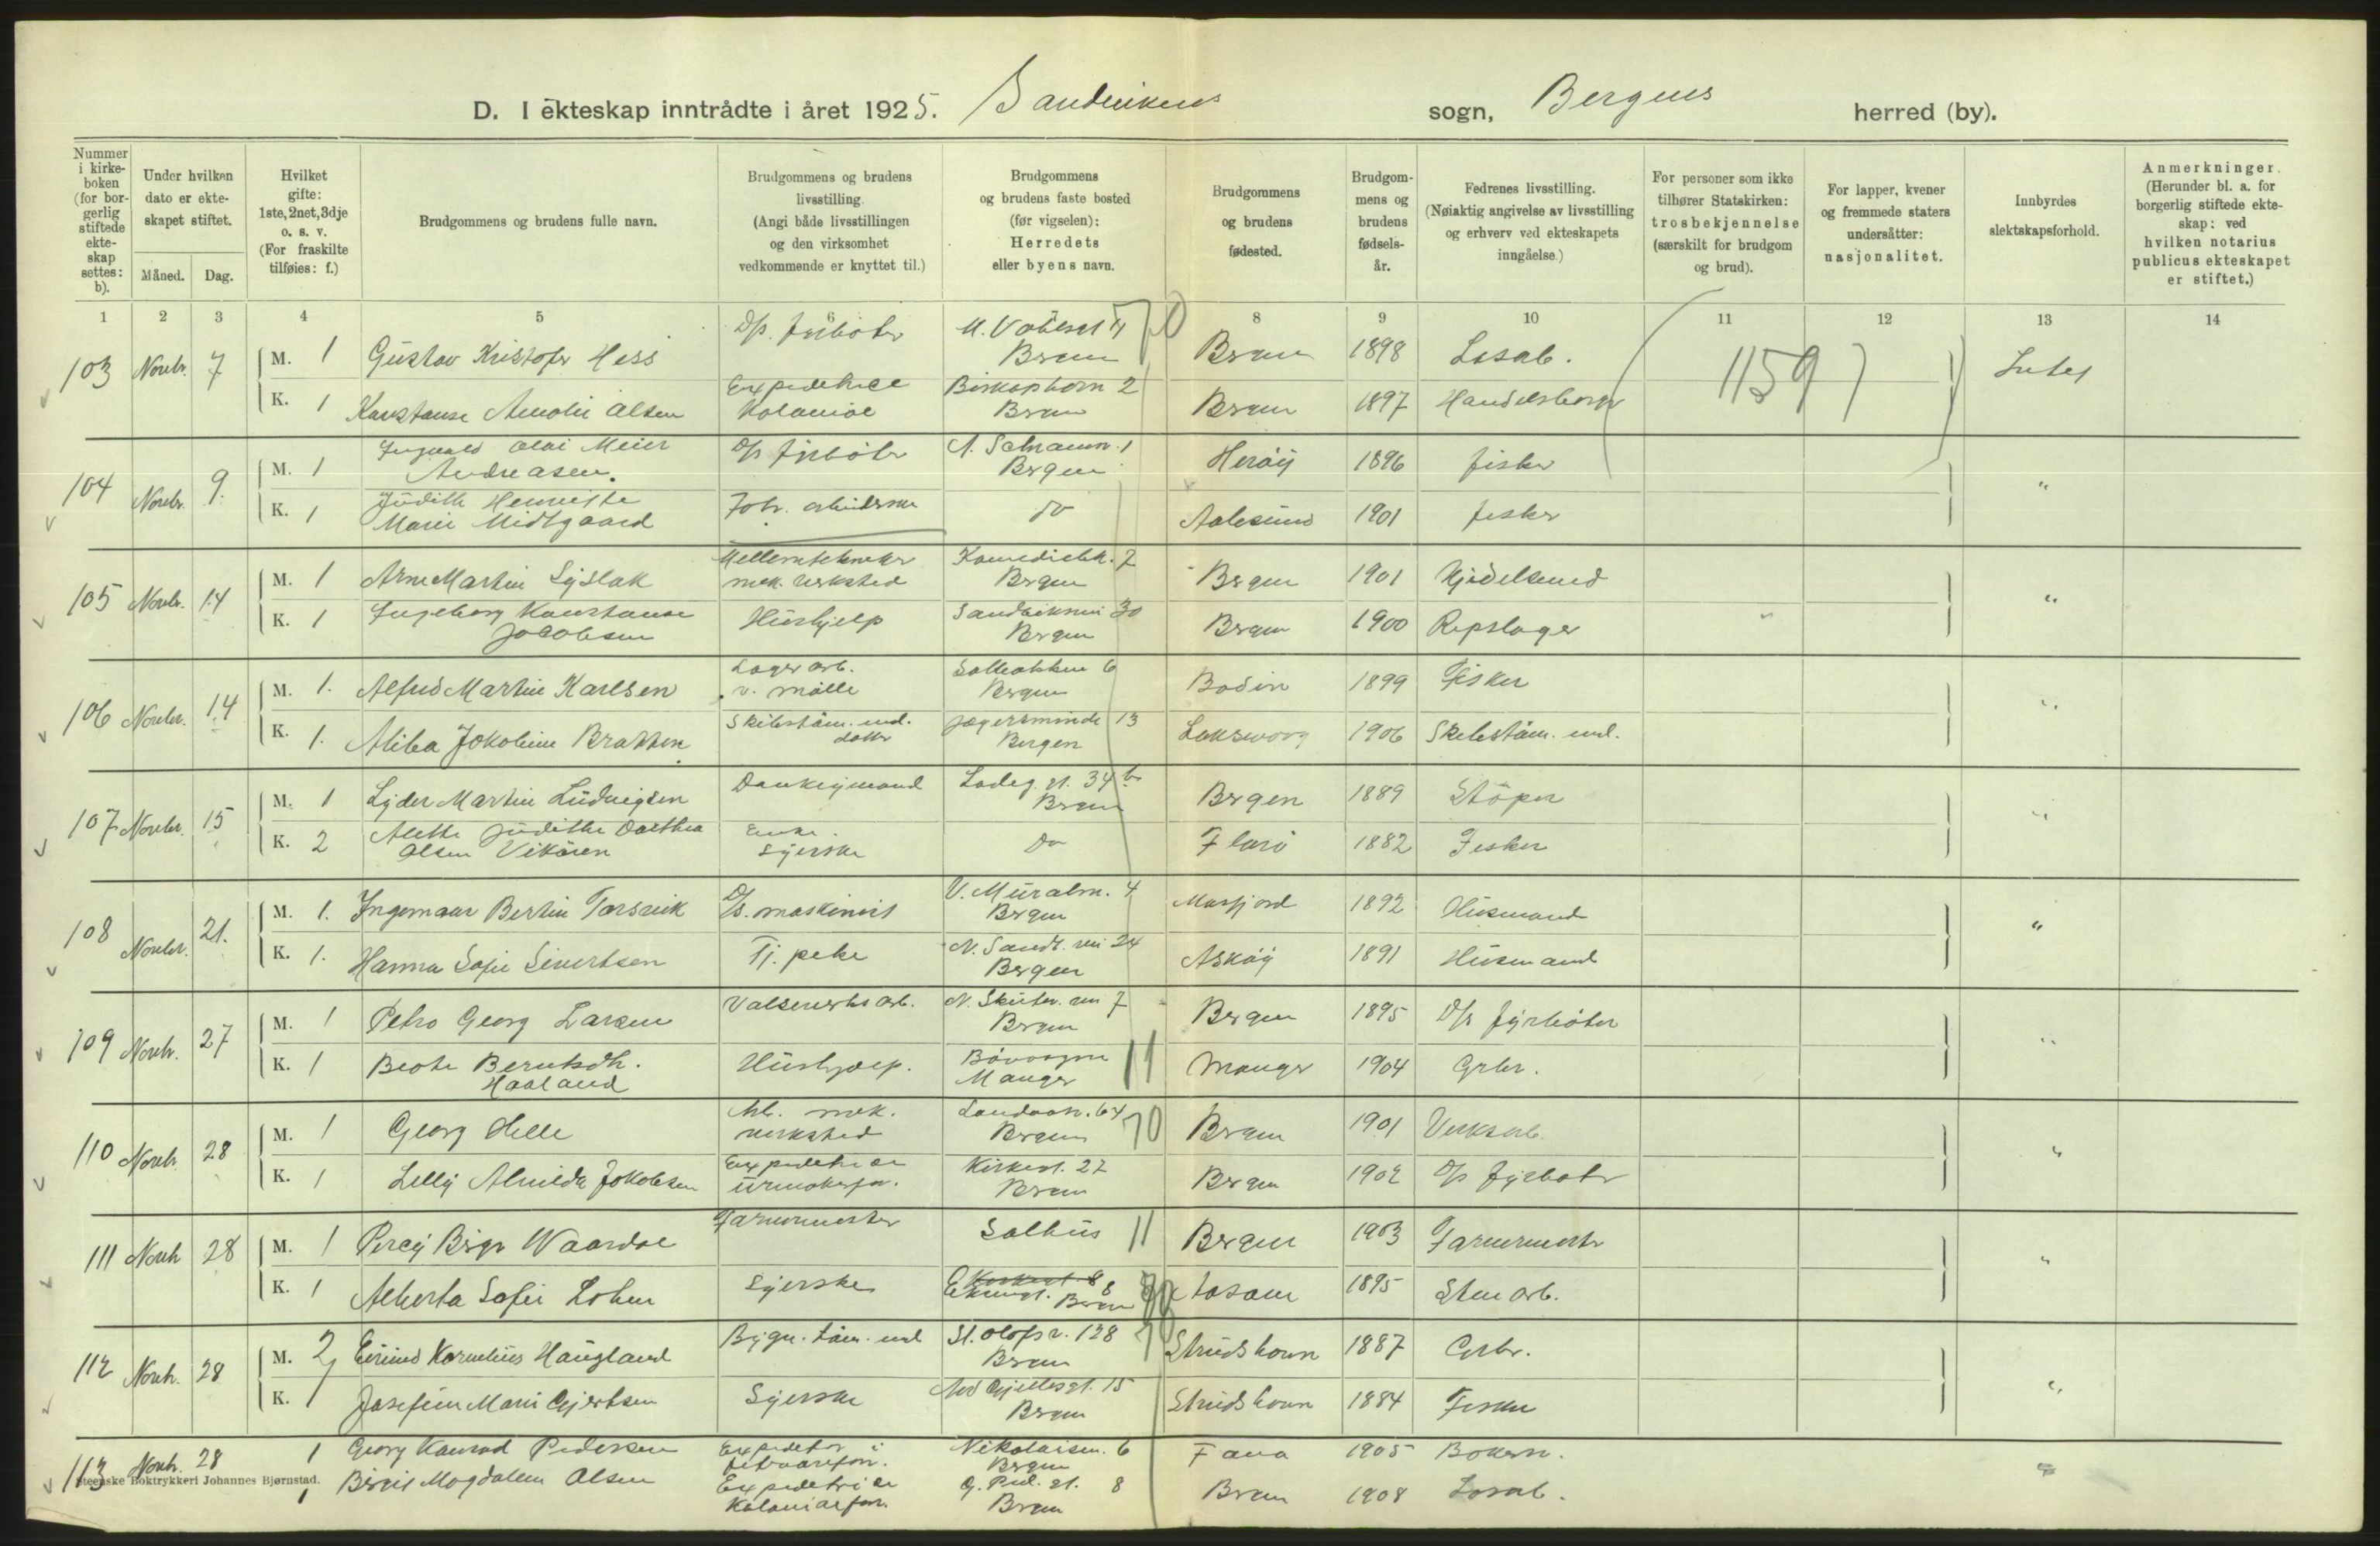 D. I ekteskap inntrådte i året 1925. Sandvikens sogn, Bergens herred (by).
Nummer i kirke-boken (for bor-gerlig stiftede ekte-skap settes: b).
Under hvilken dato er ekte-skapet stiftet.
Måned. Dag.
Hvilket gifte: 1ste, 2net, 3dje o. s. v. (For fraskilte tilføies: f.)
Brudgommens og brudens fulle navn.
Brudgommens og brudens livsstilling. (Angi både livsstillingen og den virksomhet vedkommende er knyttet til.)
Brudgommens og brudens faste bosted (før vigselen): Herredets eller byens navn.
Brudgommens og brudens fødested.
Brudgom-mens og brudens fødsels-år.
Fedrenes livsstilling. (Nøiaktig angivelse av livsstilling og erhverv ved ekteskapets inngåelse.)
For personer som ikke tilhører Statskirken: trosbekjennelse (særskilt for brudgom og brud).
For lapper, kvener og fremmede staters undersåtter: nasjonalitet.
Innbyrdes slektskapsforhold.
Anmerkninger. (Herunder bl. a. for borgerlig stiftede ekte-skap: ved hvilken notarius publicus ekteskapet er stiftet.)
1 2 3 4 5 6 7 8 9 10 11 12 13 14
103 Novbr. 7 M. 1 Gustav Kristofer Hess D/s. fyrbøter Bergen 70 Bergen 1898 Losarb. (1159)
K. 1 Konstanse Amalie Olsen Expeditrice Kolonial Biskopshavn 2 Bergen Bergen 1897 Handelsborger
104 Novbr. 9. M. 1 Ingvald Olai Meier Andreasen. D/s fyrbøter Bergen Herøy 1896 fisker "
K. 1 Judith Henriette Marie Midtgaard Fabr. arbeiderske do Aalesund 1901 fisker
105 Novbr. 14 M. 1 Arne Martin Lyslak mek. verksted Bergen Bergen 1901 "
K. 1 Ingeborg Konstanse Jacobsen Hushjelp Sandviksvei 30 Bergen Bergen 1900 Repslager
106 Novbr. 14 M. 1. Alfred Martin Karlsen Lager arb. v. mølle Bergen Bodin 1899 Fisker "
K. 1. Jægersminde 13 Bergen Laksevaag 1906 Skibstøm. md.
107 Novbr. 15 M. 1 Lyder Martin Ludvigsen Donkeymand Ladeg. gt. 34 b Bergen Bergen 1889 Støper "
K. 2 Enke. Syerske Do Florø 1882 Fisker
108 Novbr. 21. M. 1. Ingemar Bertin Torsvik D/s. maskinist V. Muralm. 4 Bergen Masfjord 1892 Husmand "
K. 1. Hanna Sofie Sivertsen Tj. pike N. Sandv. vei 24 Bergen Askøy 1891 Husmand
109 Novbr. 27 M. 1 Petro Georg Larsen Valseverks arb. N. Skutev. vei 7 Bergen Bergen 1895 D/s fyrbøter "
K. 1 Beate Berntsdtr. Haaland Hushjælp. Bøvaagen Manger 11 Manger 1904 Grbr.
110 Novbr. 28 M. 1 Georg Helle Arb. mek. verksted Landaas. 64 Bergen 70 Bergen 1901 Verksarb. "
K. 1 Lilly Alvilda Jakobsen Expeditrice urmakerfor. Kirkegt. 22 Bergen Bergen 1902 D/s fyrbøter
111 Novbr 28 M. 1 Percy Birger Waardal Farvemester Salhus 11 Bergen 1903 Farvermester "
K. 1 Alberta Sofie Syerske 8 Bergen 70 1895 Stenarb.
112 Novbr. 28 M. 2 Eivind Kornelius Haugland Bygn. tøm. md St. Olafs v. 128 Bergen 70 Strudshavn 1887 Grbr. "
K. 1 Josefine Marie Gjertsen Syerske 15 Bergen Strudshavn 1884 Fisker
113 Novbr. 28 1 Georg Konrad Pedersen Expeditør i Nikolaism. 6 Bergen Fana 1905 Bokern. "
1 Birgit Magdalene Olsen Expeditrice Kolonialfor. 8 Bergen Bergen 1908 Losarb.
Steenske Boktrykkeri Johannes Bjørnstad.